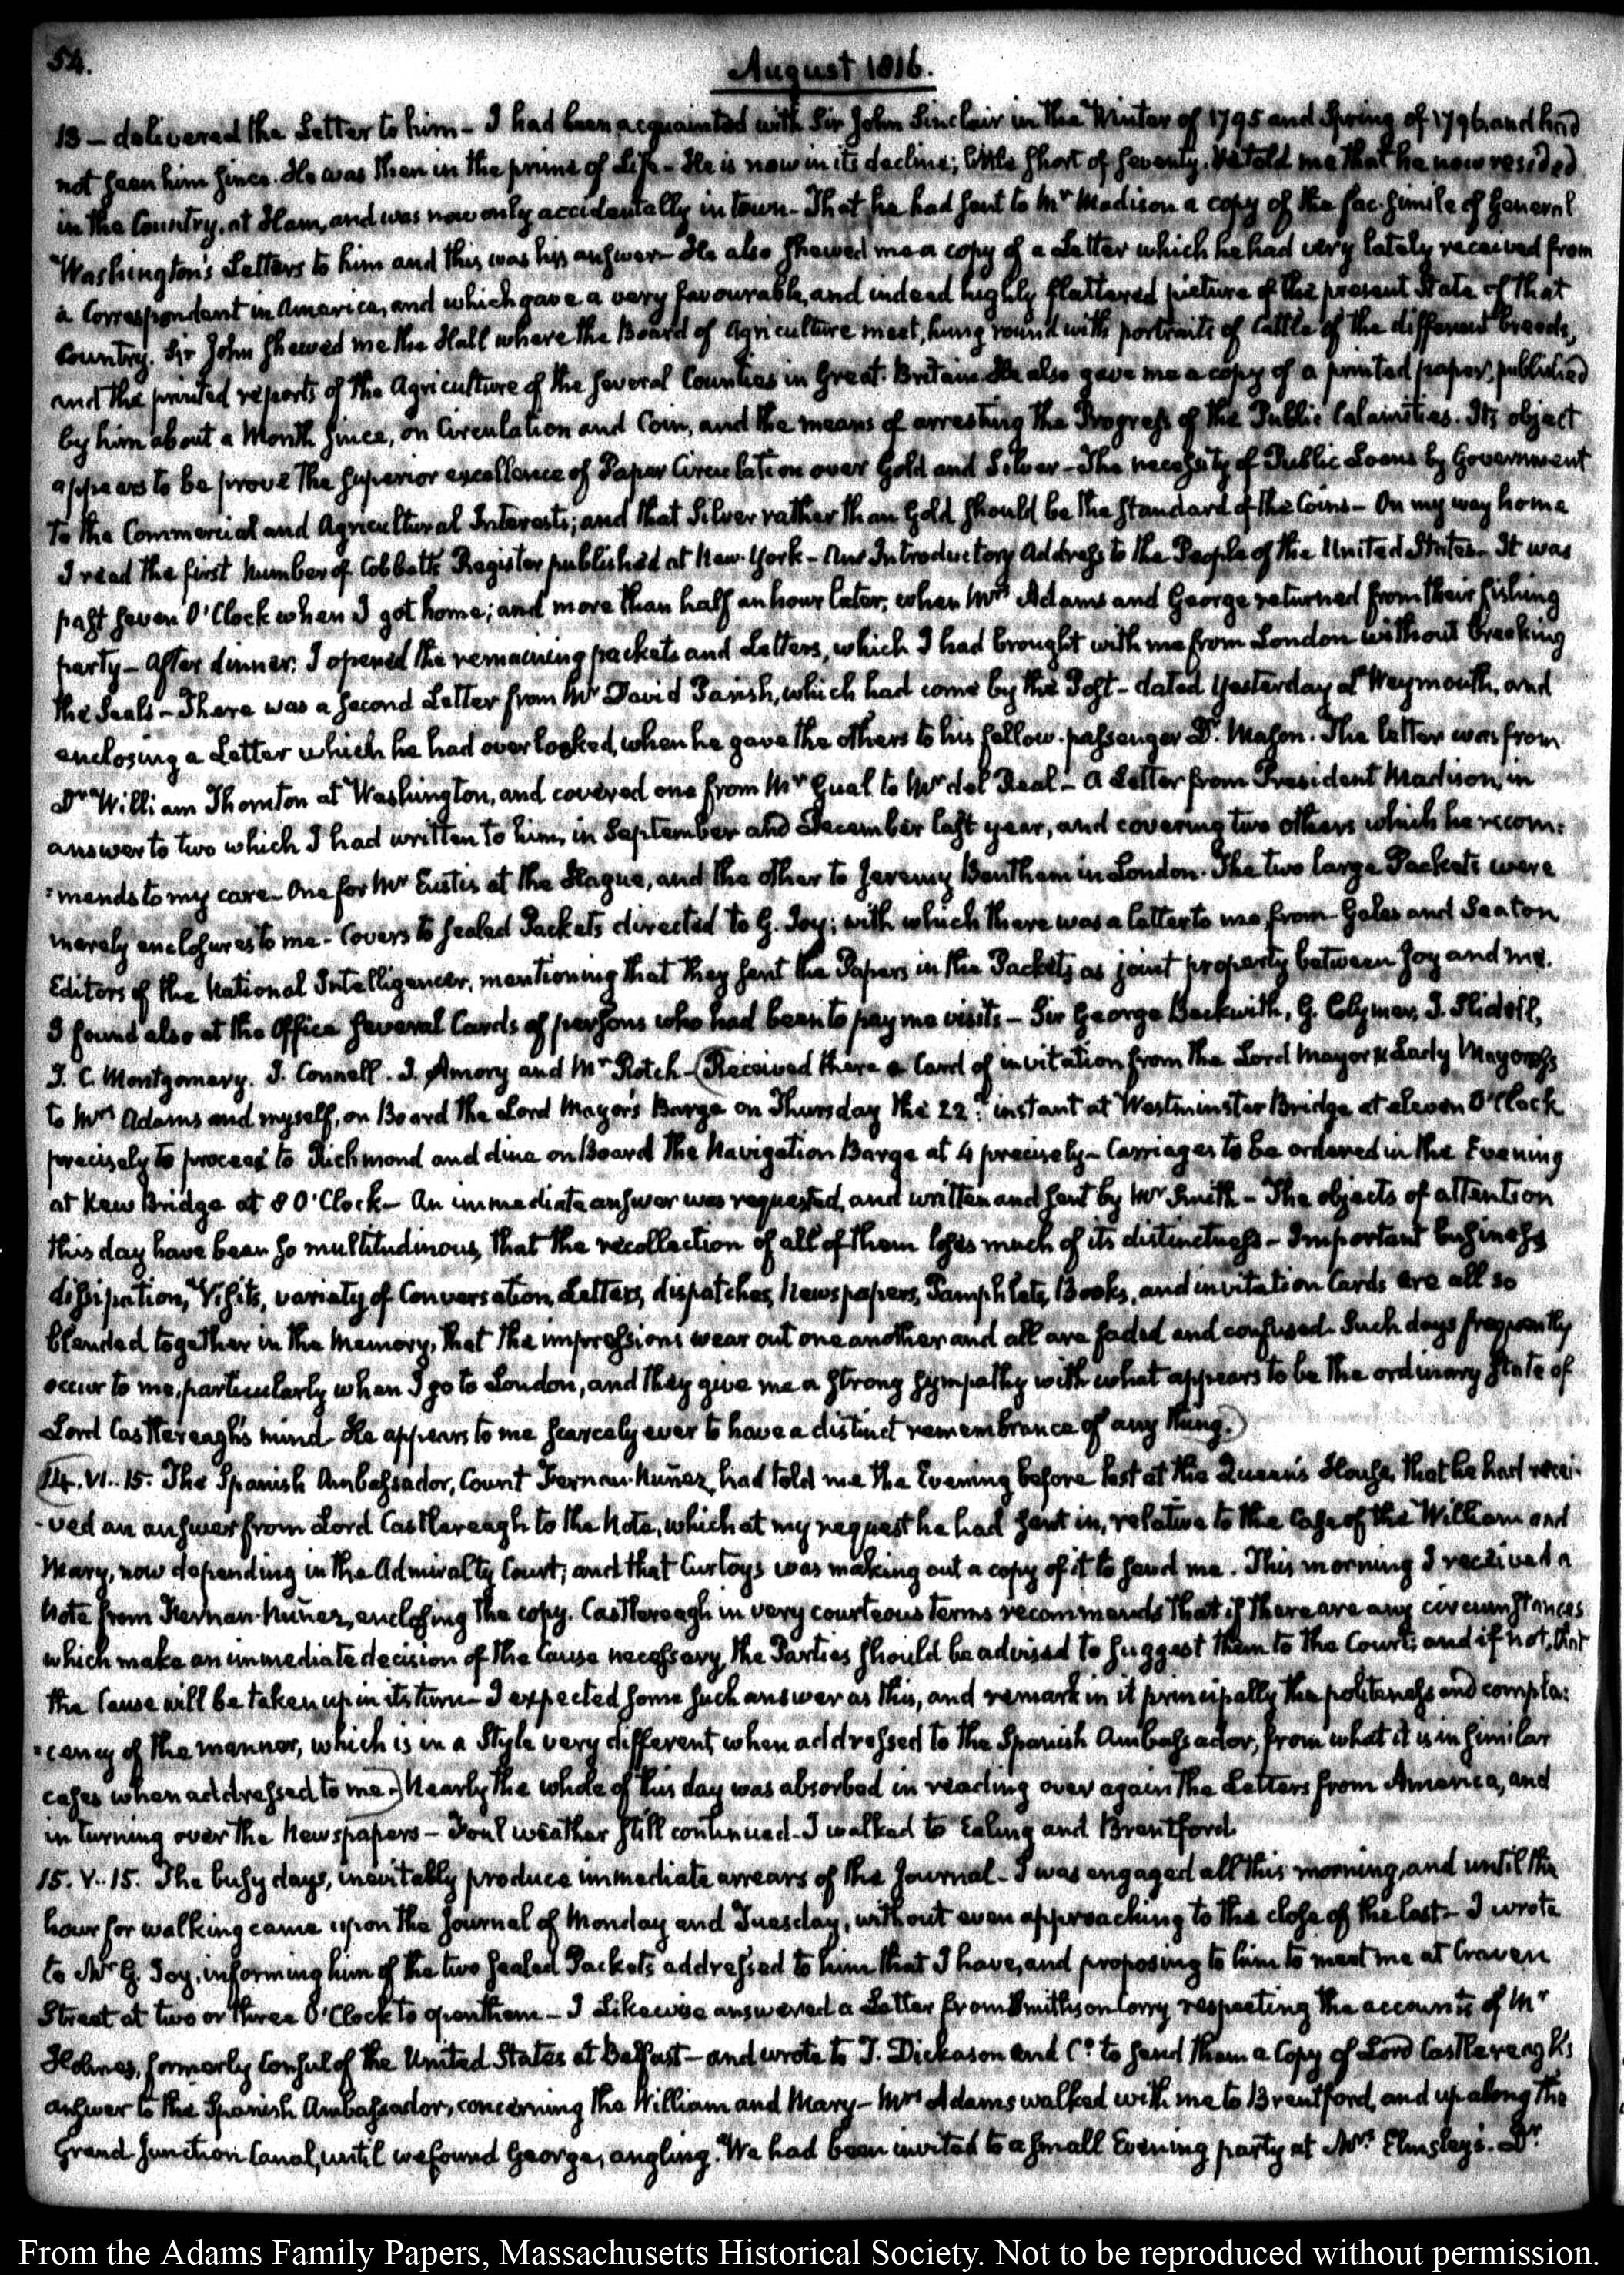 54.
August 1816.
13 — delivered the Letter to him — I had been acquainted with Sir John Sinclair in the Winter of 1795 and Spring of 1796 and had
not seen him since. He was then in the prime of Life — He is now in its decline; little short of seventy. He told me that he now resided
in the Country, at Ham, and was now only accidentally in town — That he had sent to Mr Madison a copy of the fac-simile of General
Washington's Letters to him and this was his answer — He also shewed me a copy of a Letter which he had very lately received from
a Correspondent in America, and which gave a very favourable, and indeed highly flattered picture of the present State of that
Country. Sir John shewed me the Hall where the Board of Agriculture meet, hung round with portraits of Cattle of the different breeds,
and the printed reports of the Agriculture of the several Counties in Great-Britain. He also gave me a copy of a printed paper, published
by him about a Month since, on Circulation and Coin, and the means of arresting the Progress of the Public Calamities. Its object
appears to be prove the superior excellence of Paper Circulation over Gold and Silver — The necessity of Public Loans by Government
to the Commercial and Agricultural Interests; and that Silver rather than Gold should be the standard of the Coins — On my way home
I read the first Number of Cobbett's Register published at New-York — An Introductory Address to the People of the United States — It was
past seven O'Clock when I got home; and more than half an hour later, when Mrs Adams and George returned from their fishing
party — After dinner I opened the remaining packets and Letters, which I had brought with me from London without breaking
the Seals — There was a second Letter from Mr David Parish, which had come by the Post — dated yesterday at Weymouth, and
enclosing a Letter which he had overlooked, when he gave the others to his fellow-passenger Dr. Mason. The letter was from
Dr William Thornton at Washington, and covered one from Mr Gual to Mr del Real — A Letter from President Madison, in
answer to two which I had written to him, in September and December last year, and covering two others which he recom:
:mends to my care — One for Mr Eustis at the Hague, and the other to Jeremy Bentham in London. The two large Packets were
merely enclosures to me — Covers to sealed Packets directed to G. Joy; with which there was a letter to me from Gales and Seaton
Editors of the National Intelligencer, mentioning that they sent the Papers in the Packets as joint property between Joy and me.
I found also at the Office several Cards of persons who had been to pay me visits — Sir George Beckwith, G. Clymer, J. Slidell,
J. C. Montgomery. J. Connell. J. Amory and Mr Rotch — (Received there a Card of invitation from the Lord Mayor & Lady Mayoress
to Mrs Adams and myself, on Board the Lord Mayor's Barge on Thursday the 22d. instant at Westminster Bridge at eleven O'Clock
precisely to proceed to Richmond and dine on Board the Navigation Barge at 4 precisely — Carriages to be ordered in the Evening
at Kew Bridge at 8 O'Clock — An immediate answer was requested, and written and sent by Mr Smith — The objects of attention
this day have been so multitudinous, that the recollection of all of them loses much of its distinctness — Important business
dissipation, Visits, variety of Conversation, Letters, dispatches, Newspapers, Pamphlets, Books, and invitation Cards are all so
blended together in the Memory, that the impressions wear out one another and all are faded and confused. Such days frequently
occur to me, particularly when I go to London, and they give me a strong sympathy with what appears to be the ordinary state of
Lord Castlereagh's mind. He appears to me scarcely ever to have a distinct remembrance of any thing.)
14. VI. 15. The Spanish Ambassador, Count Fernan-Nuñez, had told me the Evening before last at the Queen's House, that he had recei-
-ved an answer from Lord Castlereagh to the Note, which at my request he had sent in, relative to the Case of the William and
Mary, now depending in the Admiralty Court; and that Curtoys was making out a copy of it to send me. This morning I received a
Note from Fernan-Nuñez, enclosing the copy. Castlereagh in very courteous terms recommends that if there are any circumstances
which make an immediate decision of the Cause necessary, the Parties should be advised to suggest them to the Court; and if not, that
the Cause will be taken up in its turn — I expected some such answer as this, and remark in it principally the politeness and compla:
:cency of the manner, which is in a Style very different, when addressed to the Spanish Ambassador, from what it is in similar
cases when addressed to me.) Nearly the whole of this day was absorbed in reading over again the Letters from America, and
in turning over the Newspapers — Foul weather still continued — I walked to Ealing and Brentford.
15. V. 15. The busy days, inevitably produce immediate arrears of the Journal — I was engaged all this morning, and until the
hour for walking came upon the Journal of Monday and Tuesday, without even approaching to the close of the last — I wrote
to Mr G. Joy, informing him of the two sealed Packets addressed to him that I have, and proposing to him to meet me at Craven
Street at two or three O'Clock to open them — I likewise answered a Letter from Smithson Corry respecting the accounts of Mr
Holmes, formerly Consul of the United States at Belfast — and wrote to T. Dickason and Co. to send them a Copy of Lord Castlereagh's
answer to the Spanish Ambassador, concerning the William and Mary — Mrs Adams walked with me to Brentford, and up along the
Grand Junction Canal, until we found George, angling. We had been invited to a small Evening party at Mrs Elmsley's. Dr.
From the Adams Family Papers, Massachusetts Historical Society. Not to be reproduced without permission.